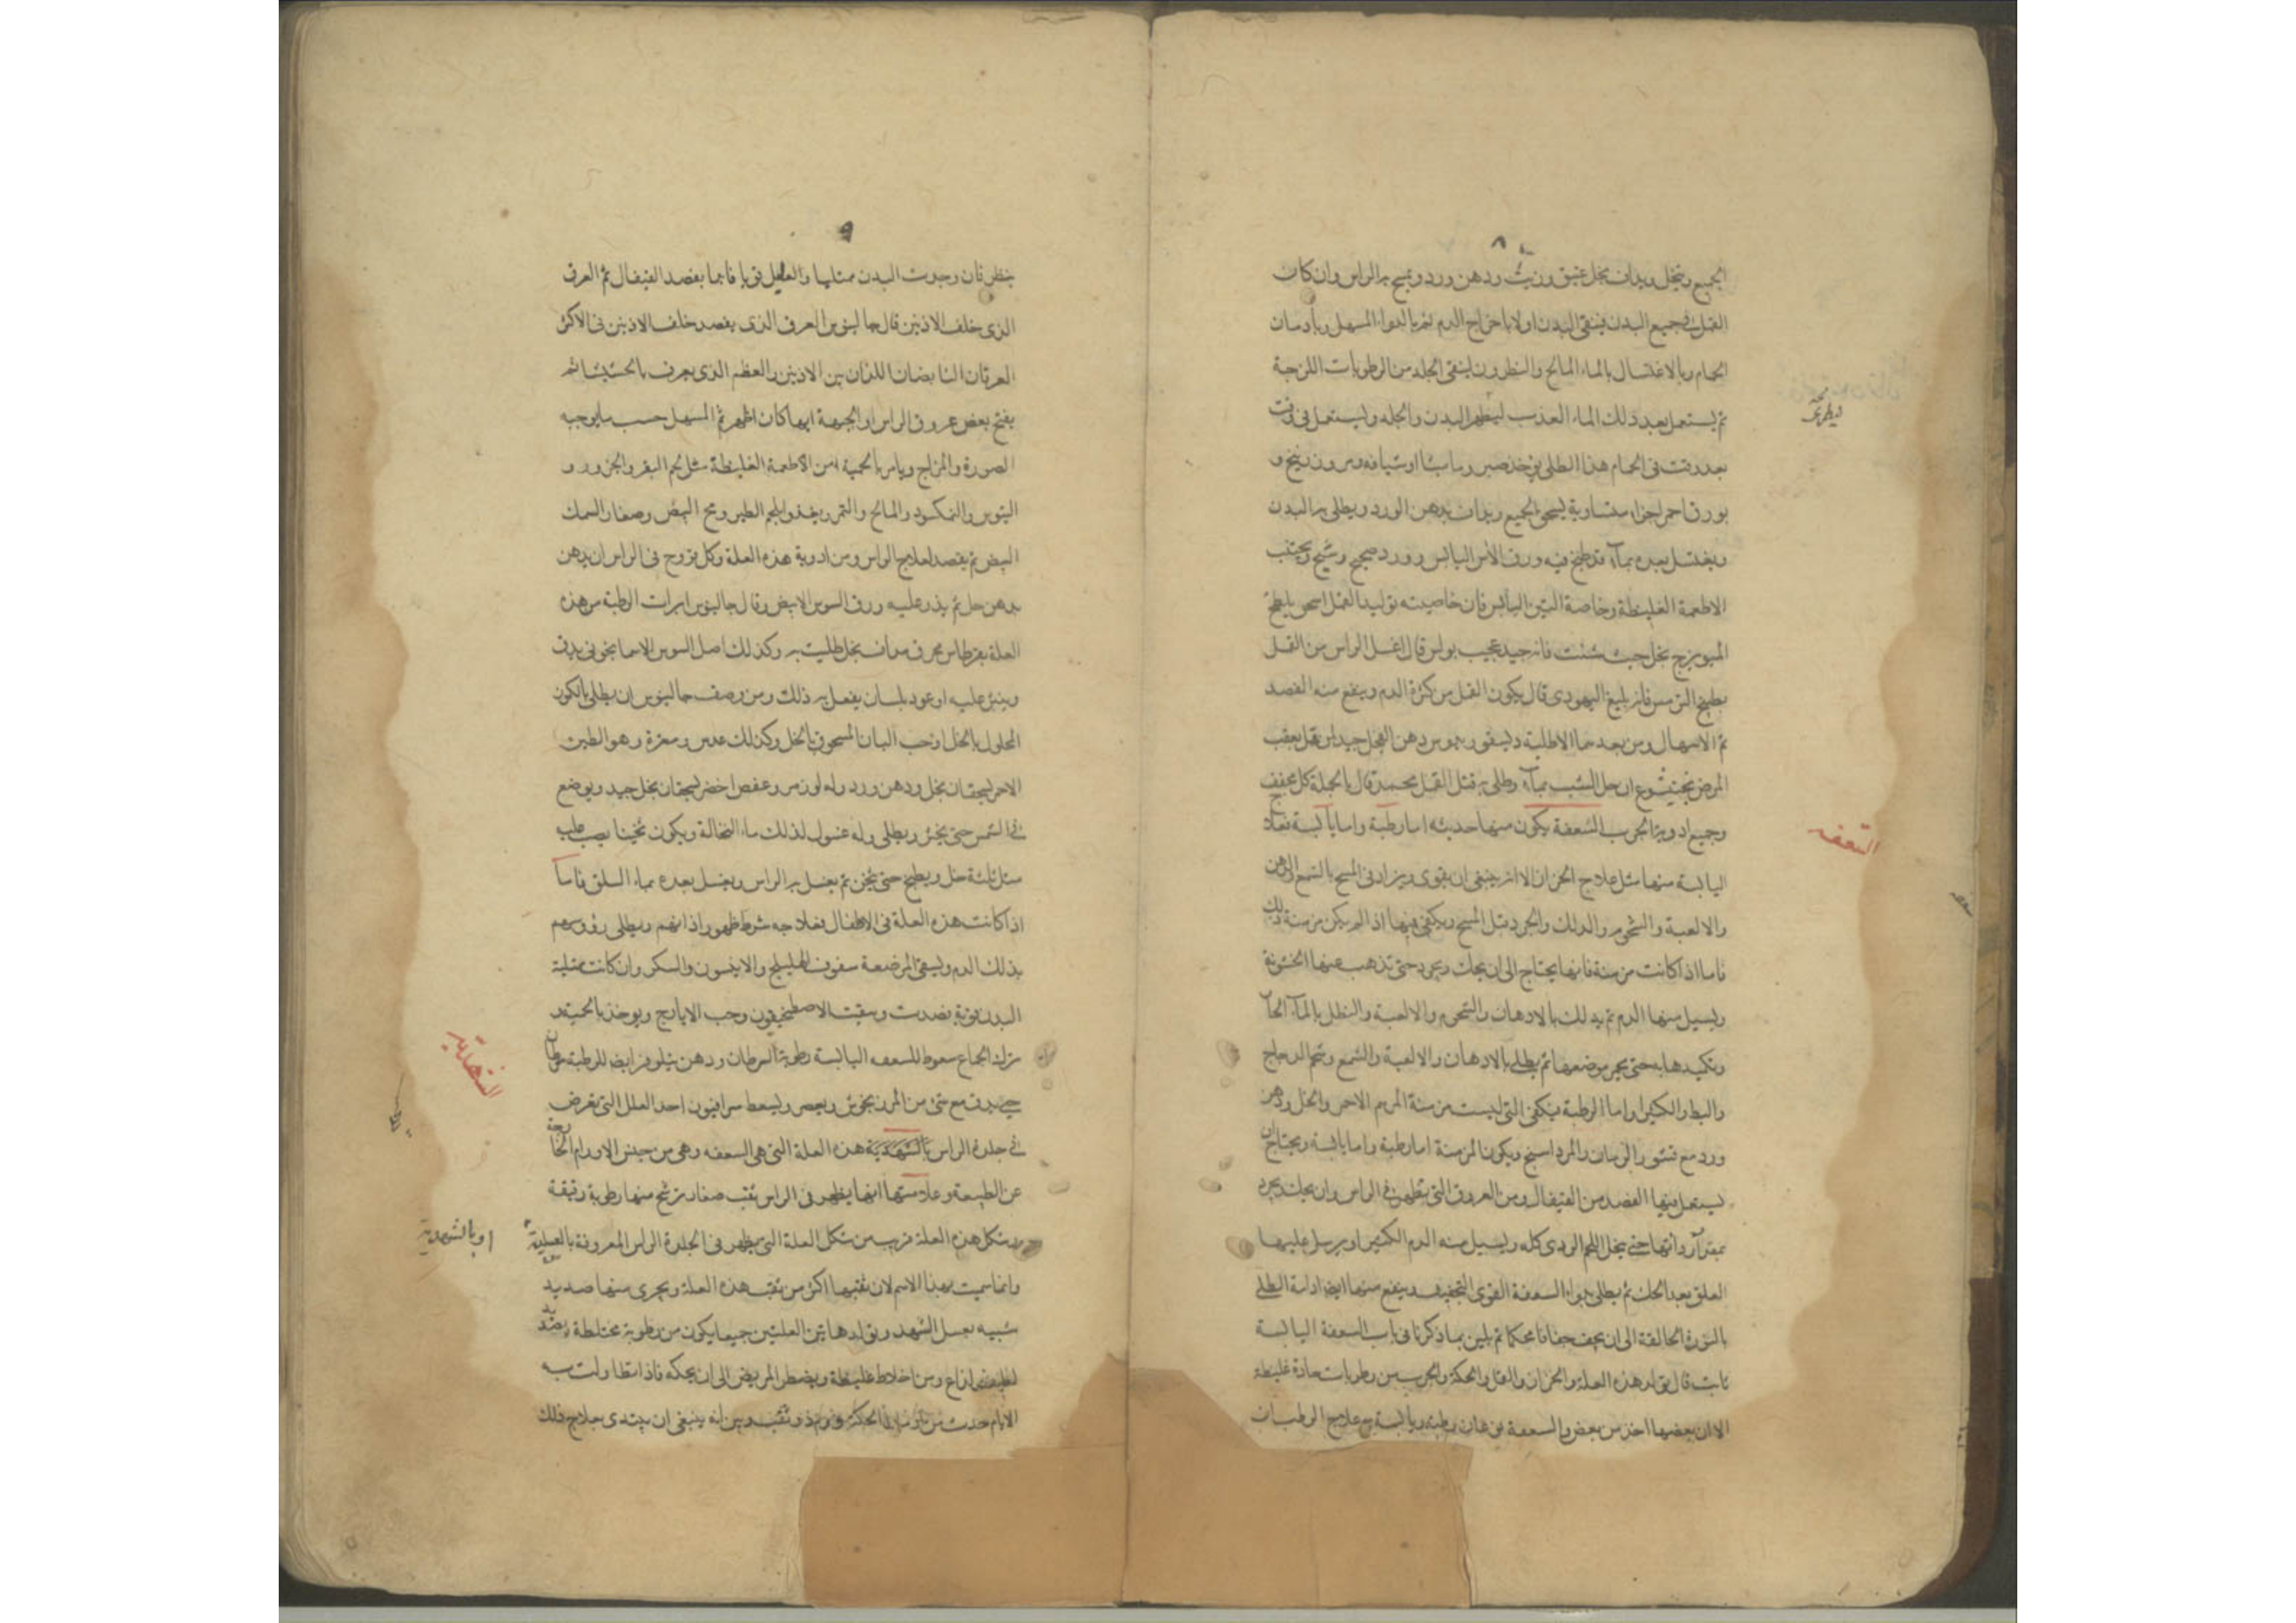 ٨
الجميع وينخل ويداف بخل عتيق وزيت ودهن ورد ويمسح به الراس وان كان
القمل في جميع البدن فينقى البدن اولا باخراج الدم ثم بالدواء المسهل وبادمان
الحمام وبالاغتسال بالماء المالح والنطرون لينقى الجلد من الرطوبات اللزجة
ثم يستعمل بعد ذلك الماء العذب ليطهر البدن والجلد وليستعمل في وقت
بعد وقت في الحمام هذا الطلى يوخذ صبر وماميثا او شيافه ومر وزرنيخ و
بورق احمر اجزاء متساوية يسحق الجميع ويداف بدهن الورد ويطلى به البدن
ويغتسل بعده بماء قد طبخ فيه ورق الآس اليابس وورد صحيح وشيح ويجتنب
الاطعمة الغليظة وخاصة التين اليابس فان خاصيته توليد القمل اسحق يلطخ
الميويزج بخل حيث شئت فانه جيد عجيب بولس قال اغسل الراس من القمل
بطبيخ الترمس فانه بليغ اليهودى قال يكون القمل من كثرة الدم وينفع منه الفصد
ثم الاسهال ومن بعدهما الاطلية ديسقوريدوس دهن الفجل جيد لمن يقمل بعقب
المرض بختيشوع ان حل الشب بماء وطلى به قتل القمل محمد قال بالجملة كل مجفف
وجميع ادوية الجرب السعفة يكون منها حديثه اما رطبة واما يابسة فعلاج
اليابسة منها مثل علاج الحزاز الا انه ينبغى ان يقوى ويزاد في المسح بالشمع والدهن
والالعبة والشحوم والدلك والجرد قبل المسح ويكفى فيها اذا لم يكن مزمنة ذلك
فاما اذا كانت مزمنة فانها يحتاج الى ان يحك ويجرد حتى تذهب عنها الخشونة
ويسيل منها الدم ثم يدلك بالادهان والشحوم والالعبة والنطل بالماء الحار
وتكميدها به حتى يحمر موضعها ثم يطلى بالادهان والالعبة والشمع وشحم الدجاج
والبط والكثيرا واما الرطبة فيكفى التى ليست مزمنة المرهم الاحمر والخل ودهن
ورد مع قشور الرمان والمرداسنج ويكون المزمنة اما رطبة واما يابسة ويحتاج ان
يستعمل فيها الفصد من القيفال ومن العروق التى يظهر في الراس وان يحك ويجرد
حتى ينحل اللحم الردى كله ويسيل منه الدم الكثير او يرسل عليها
العلق بعد الحك ثم يطلى بدواء السعفة القوى التجفيف وينفع منها ايضا ادامة الطلى
بالنورة الحالقة الى ان يجف جفافا محكما ثم يلين بما ذكرنا في باب السعفة اليابسة
ثابت قال تولد هذه العلة والحزاز والقمل والحكة والجرب من رطوبات حادة غليظة
الا ان بعضها احد من بعض والسعفة نوعان رطبة ويابسة علاج الرطب ان
السعفه
٩
ينظر فان وجدت البدن ممتليا والعليل قويا فابدا بفصد القيفال ثم العرق
الذى خلف الاذنين قال جالينوس العرق الذى يفصد خلف الاذنين في الاكثر
العرقان النابضان اللذان بين الاذنين والعظم الذى يعرف بالخششا ثم
يفتح بعض عروق الراس او الجبهة ايها كان اظهر ثم المسهل حسب ما يوجبه
الصورة والمزاج ويامر بالحمية من الاطعمة الغليظة مثل لحم البقر والجزور و
التيوس والنمكسود والمالح والتمر ويغذو بلحم الطير ومح البيض وصغار السمك
البيض ثم يقصد لعلاج الراس ومن ادوية هذه العلة وكل قروح في الراس ان يدهن
بدهن حل ثم يذر عليه ورق السوسن الابيض وقال جالينوس ابرات الرطبة من هذه
العلة بقرطاس محرق مداف بخل طليت به وكذلك اصل السوسن الاسمانجونى يدق
وينثر عليه او عود بلسان يفعل به ذلك ومن وصف جالينوس ان يطلى بالكمون
المحلول بالخل او حب البان المسحوق بالخل وكذلك عدس ومغرة وهو الطين
الاحمر يسحقان بخل ودهن ورد وله لوز مر وعفص اخضر يسحقان بخل جيد ويوضع
في الشمس حتى يخثر ويطلى وله غسول لذلك ماء النخالة ويكون ثخينا يصب عليه
مثل ثلثه خل ويطبخ حتى يثخن ثم يغسل به الراس ويغسل بعده بماء السلق فاما
اذا كانت هذه العلة في الاطفال فعلاجه شرط ظهور اذانهم ويطلى رؤوسهم
بذلك الدم وليسقى المرضعة سفوف الهليلج والانيسون والسكر وان كانت ممتلية
البدن قوية فصدت وسقيت الاصطخيقون وحب الايارج ويوخذ بالحمية و
ترك الجماع سعوط للسعفه اليابسة رطوبة السرطان ودهن نيلوفر ايضا للرطبة سرطان
حى يدق مع شئ من المرزنجوش ويعصر وليسعط سرابيون احد العلل التى تعرض
في جلدة الراس بالشهدية هذه العلة التى هى السعفه وهى من جنس الاورام الخارجة
عن الطبيعة وعلامتها انها يظهر في الراس ثقب صغار ترشح منها رطوبة رقيقة
وشكل هذه العلة قريب من شكل العلة التى يظهر في الجلدة الراس المعروفة بالعسلية
او بالشهدية
وانما سميت بهذا الاسم لان ثقبها اكثر من ثقب هذه العلة ويجرى منها صديد
شبيه بعسل الشهد وتولد هاتين العلتين جميعا يكون من رطوبة مختلطة
لذاع ومن اخلاط غليظة ويضطر المريض الى ان يحكه فاذا تطاولت به
الايام حدث من الحكة ورم وثقب وبين انه ينبغى ان يبتدى بعلاج ذلك